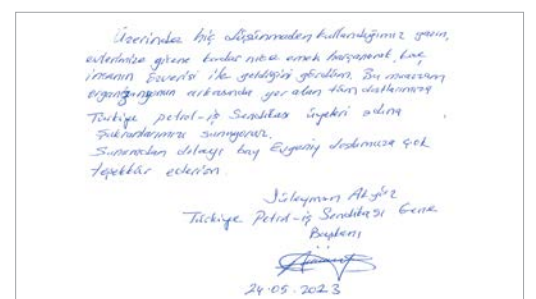 Üzerinde hiç düşünmeden kullandığımız gazın,
evlerimize girene kadar nice emek harcanarak, kaç
insanın özverisi ile geldiğini gördüm. Bu muazzam
organizasyonun arkasında yer alan tüm dostlarımıza
Türkiye petrol-iş Sendikası üyeleri adına
Şükranlarımızı sunuyoruz.
Sunumdan dolayı bay Evgeniy dostumuza çok
teşekkür ederim.
Süleyman Akyüz
Türkiye Petrol-iş Sendikası Genel
Başkanı
24.05.2023